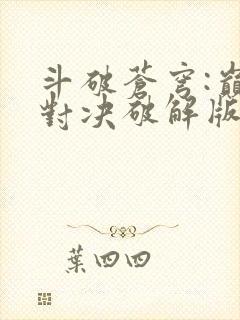 斗破蒼穹:巔
對決破解版
葉四四